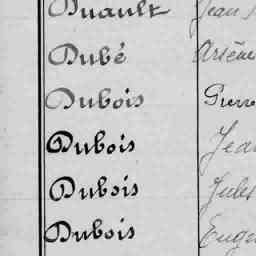 Duault Jean
Dubé Arsène
Dubois Pierre
Dubois Jean
Dubois Jules
Dubois Eugè